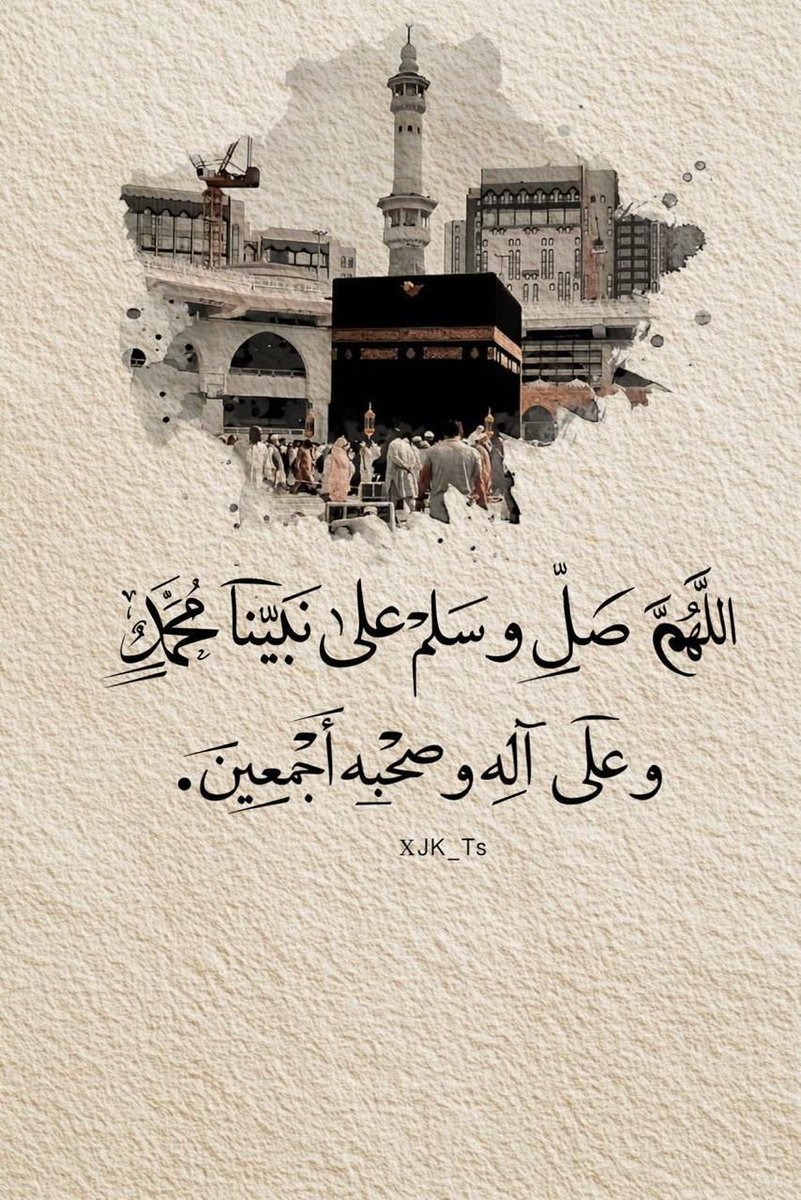 اللَّهُمَّ صَلِّ و سَلمْ على نَبَيّنا مُحَمَّدٍ
و علَى آلِه و صحْبِه أَجْمَعِينَ.
XJK_Ts